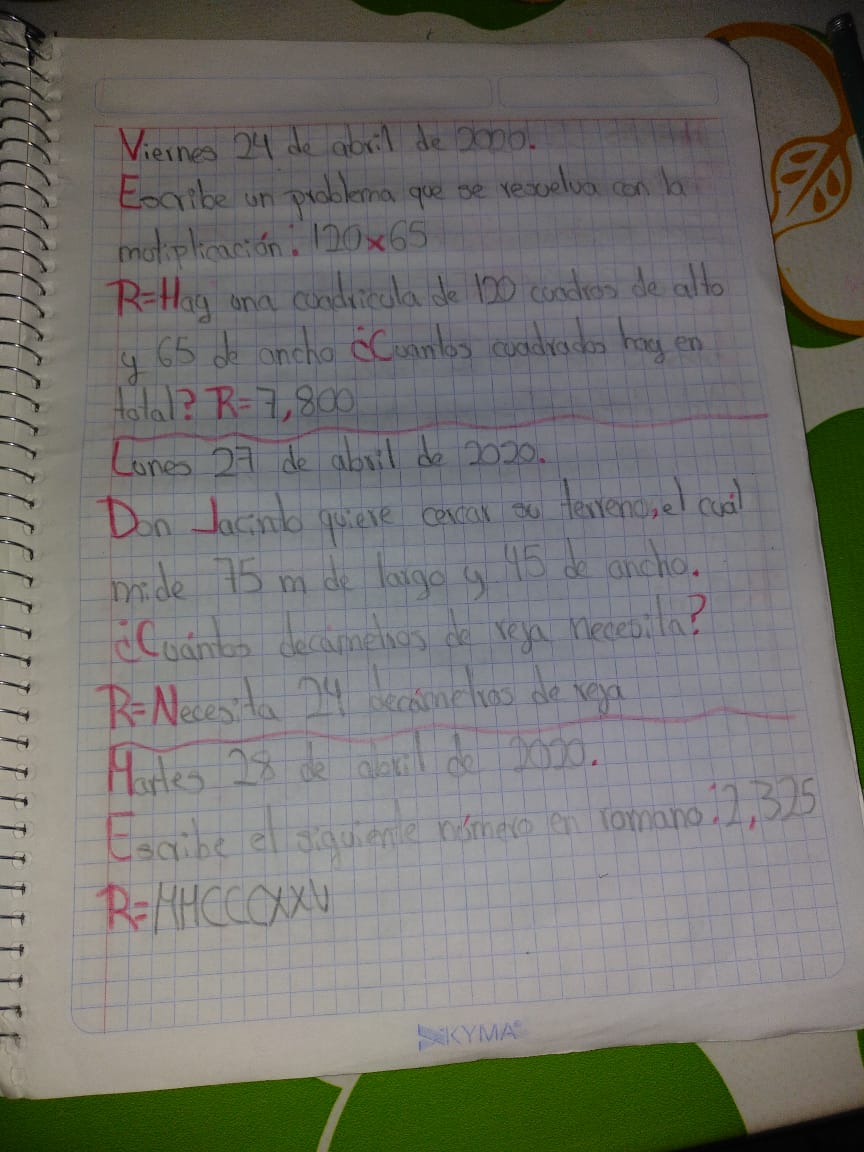 Viernes 24 de abril de 2020.
Escribe un problema que se resuelva con la
multiplicación: 120x65
R=Hay una cuadricula de 120 cuadros de alto
y 65 de ancho ¿Cuantos cuadrados hay en
total? R=7,800
Lunes 27 de abril de 2020.
Don Jacinto quiere cercar su terreno, el cuál
mide 75 m de largo y 45 de ancho.
¿Cuántos decámetros de reja necesita?
R=Necesita 24 decámetros de reja
Martes 28 de abril de 2020.
Escribe el siguiente número en romano: 2,325
R=MMCCCXXV
KYMA